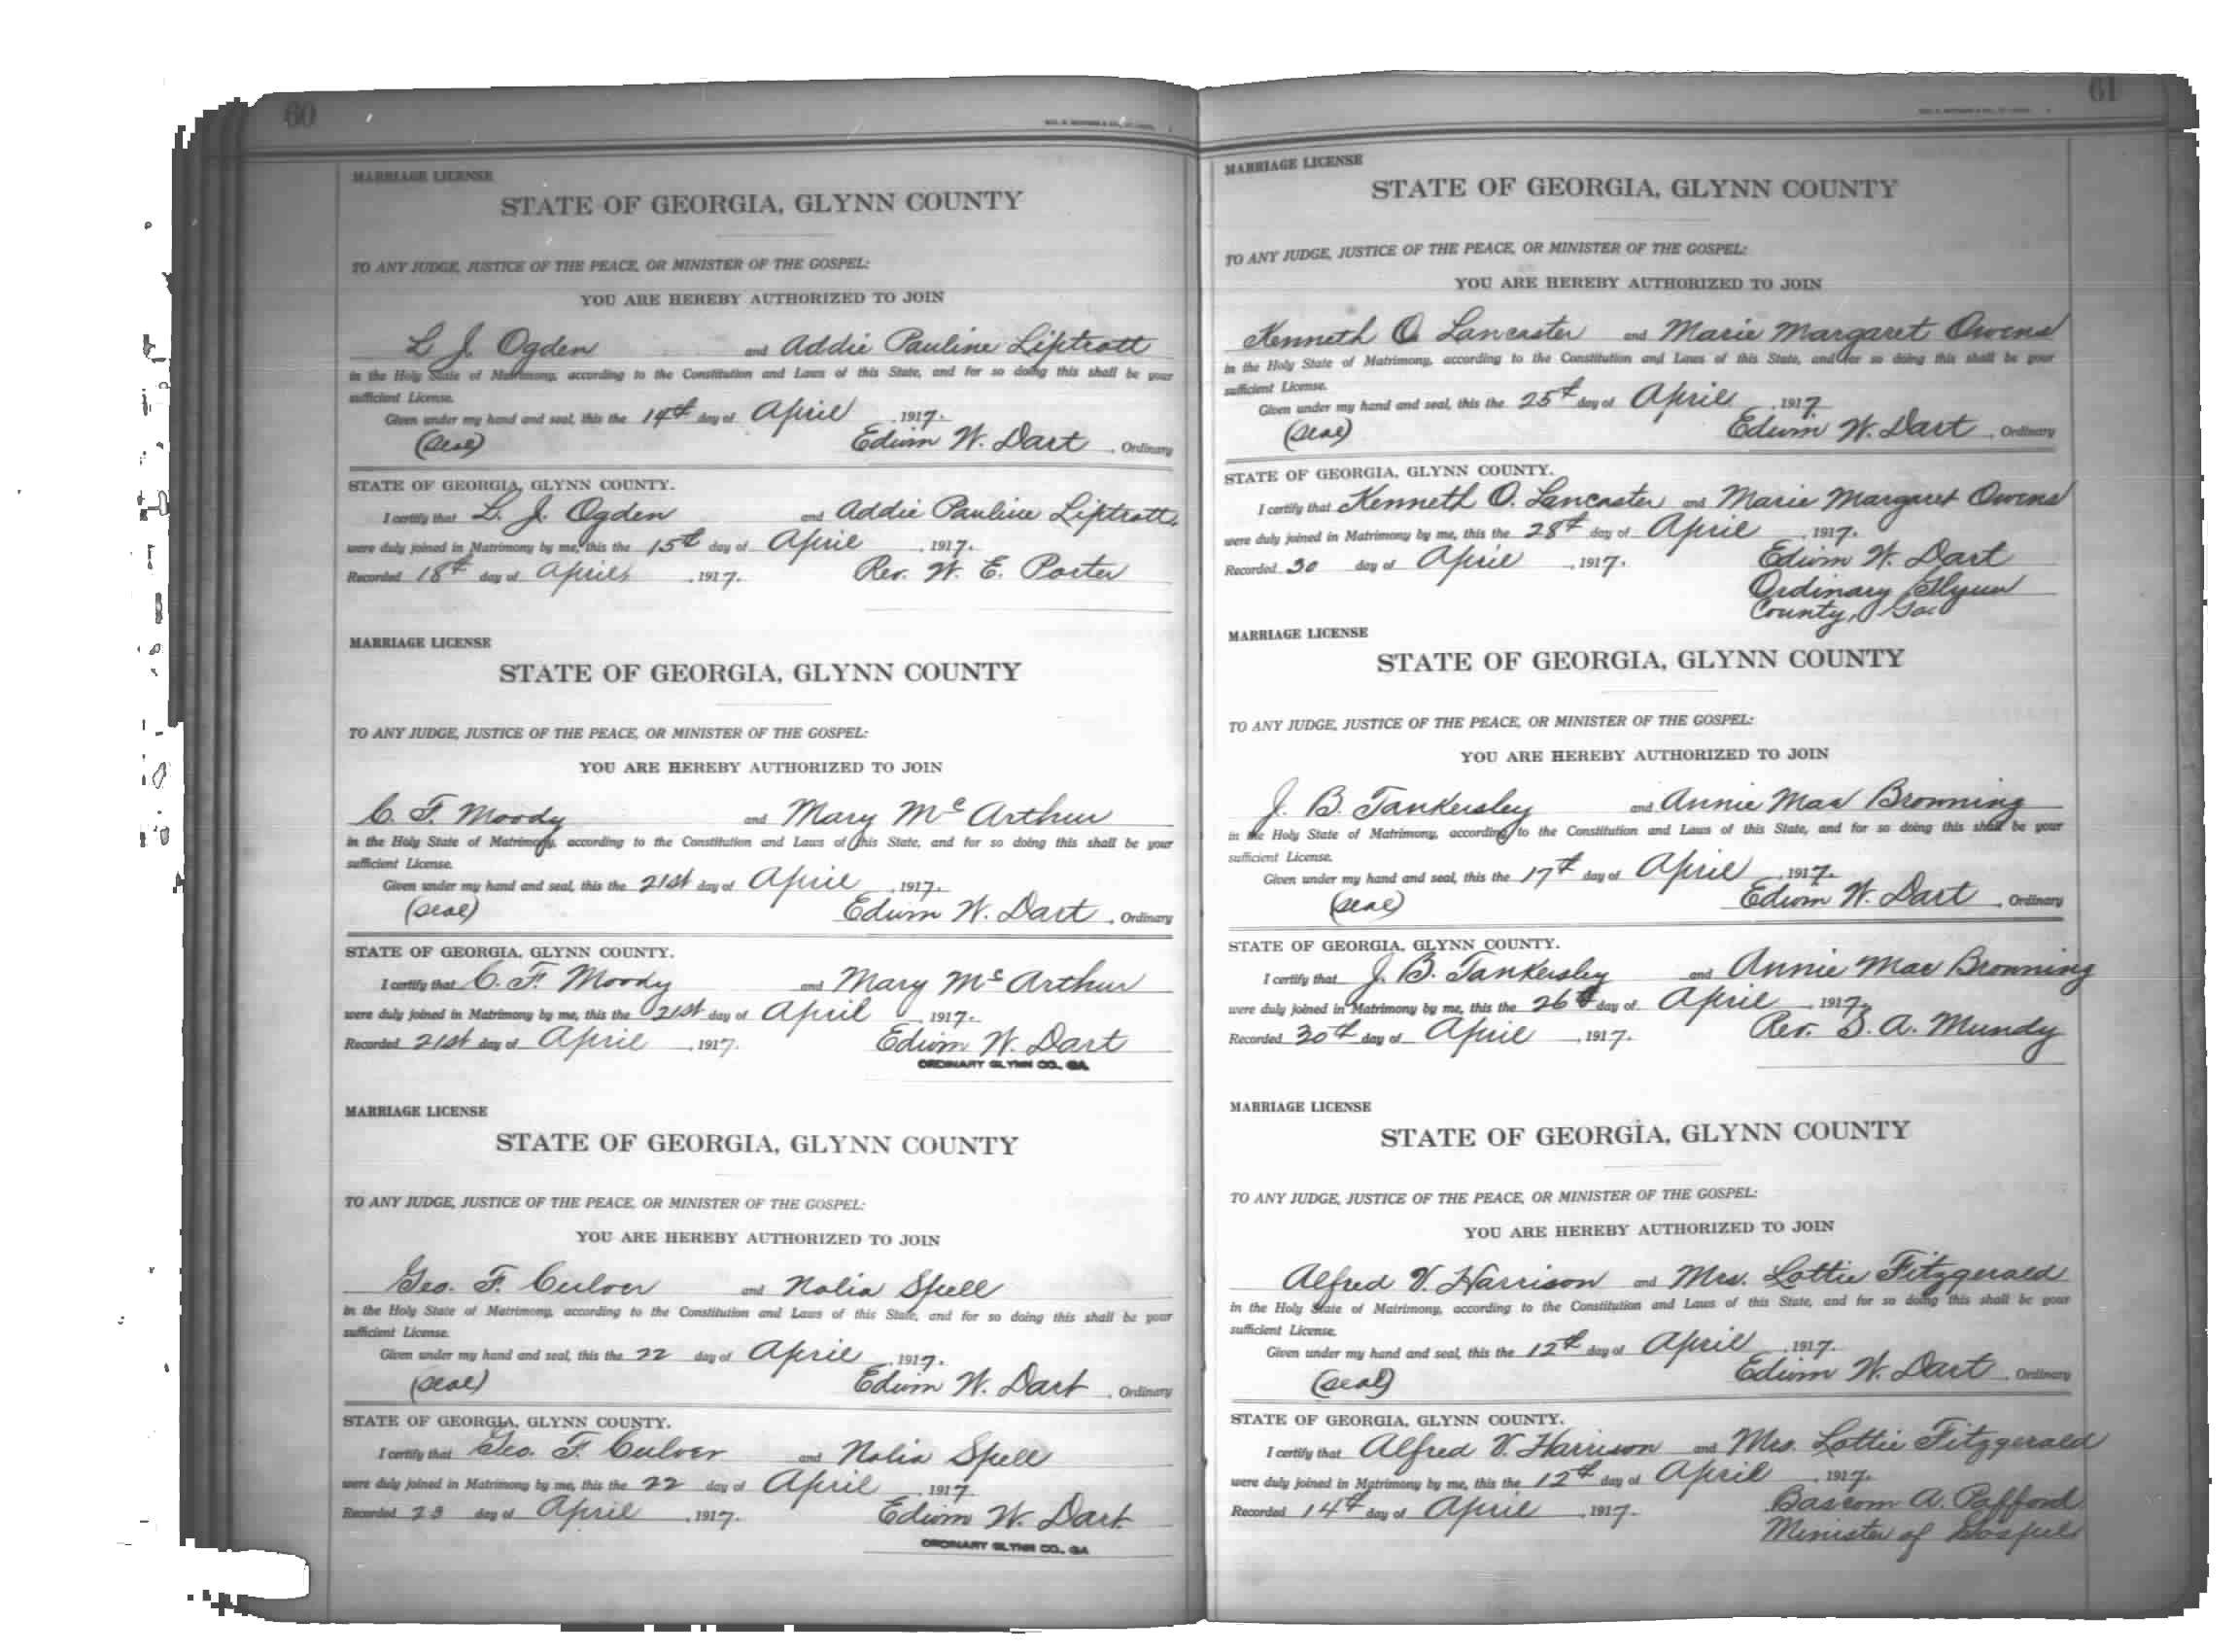 60
MARRIAGE LICENSE
STATE OF GEORGIA, GLYNN COUNTY
TO ANY JUDGE, JUSTICE OF THE PEACE, OR MINISTER OF THE GOSPEL:
YOU ARE HEREBY AUTHORIZED TO JOIN
L J. Ogden and Addie Pauline Liptrott
in the Holy State of Matrimony, according to the Constitution and Laws of this State, and for so doing this shall be your
sufficient License.
Given under my hand and seal, this the 14th day of April 1917.
(Seal) Edwin W. Dart, Ordinary
STATE OF GEORGIA, GLYNN COUNTY.
I certify that L. J. Ogden and Addie Pauline Liptrott.
were duly joined in Matrimony by me, this the 15th day of April, 1917.
Recorded 18th day of April, 1917. Rev. W. E. Porter
MARRIAGE LICENSE
STATE OF GEORGIA, GLYNN COUNTY
TO ANY JUDGE, JUSTICE OF THE PEACE, OR MINISTER OF THE GOSPEL:
YOU ARE HEREBY AUTHORIZED TO JOIN
C. F. Moody and Mary McArthur
in the Holy State of Matrimony, according to the Constitution and Laws of this State, and for so doing this shall be your
sufficient License.
Given under my hand and seal, this the 21st day of April, 1917.
(Seal) Edwin W. Dart, Ordinary
STATE OF GEORGIA, GLYNN COUNTY.
I certify that C. F. Moody and Mary McArthur
were duly joined in Matrimony by me, this the 21st day of April, 1917.
Recorded 21st day of April, 1917. Edwin W. Dart
ORDINARY GLYNN CO., GA
MARRIAGE LICENSE
STATE OF GEORGIA, GLYNN COUNTY
TO ANY JUDGE, JUSTICE OF THE PEACE, OR MINISTER OF THE GOSPEL:
YOU ARE HEREBY AUTHORIZED TO JOIN
Geo. F. Culver and Nolia Spell
in the Holy State of Matrimony, according to the Constitution and Laws of this State, and for so doing this shall be your
sufficient License.
Given under my hand and seal, this the 22 day of April, 1917.
(Seal) Edwin W. Dart, Ordinary
STATE OF GEORGIA, GLYNN COUNTY.
I certify that Geo. F. Culver and Nolia Spell
were duly joined in Matrimony by me, this the 22 day of April, 1917
Recorded 23 day of April, 1917. Edwin W. Dart
ORDINARY GLYNN CO., GA
61
MARRIAGE LICENSE
STATE OF GEORGIA, GLYNN COUNTY
TO ANY JUDGE, JUSTICE OF THE PEACE, OR MINISTER OF THE GOSPEL:
YOU ARE HEREBY AUTHORIZED TO JOIN
Kenneth O. Lancaster and Marie Margaret Owens
in the Holy State of Matrimony, according to the Constitution and Laws of this State, and for so doing this shall be your
sufficient License.
Given under my hand and seal, this the 25th day of April, 1917
(Seal) Edwin W. Dart, Ordinary
STATE OF GEORGIA, GLYNN COUNTY.
I certify that Kenneth O. Lancaster and Marie Margaret Owens
were duly joined in Matrimony by me, this the 28th day of April, 1917.
Recorded 30 day of April, 1917. Edwin W. Dart
Ordinary Glynn
County, Ga.
MARRIAGE LICENSE
STATE OF GEORGIA, GLYNN COUNTY
TO ANY JUDGE, JUSTICE OF THE PEACE, OR MINISTER OF THE GOSPEL:
YOU ARE HEREBY AUTHORIZED TO JOIN
J. B. Tankersley and Annie Mae Browning
in the Holy State of Matrimony, according to the Constitution and Laws of this State, and for so doing this shall be your
sufficient License.
Given under my hand and seal, this the 17th day of April, 1917.
(Seal) Edwin W. Dart, Ordinary
STATE OF GEORGIA, GLYNN COUNTY.
I certify that J. B. Tankersley and Annie Mae Browning
were duly joined in Matrimony by me, this the 26th day of April, 1917.
Recorded 30th day of April, 1917. Rev. S. A. Mundy
MARRIAGE LICENSE
STATE OF GEORGIA, GLYNN COUNTY
TO ANY JUDGE, JUSTICE OF THE PEACE, OR MINISTER OF THE GOSPEL:
YOU ARE HEREBY AUTHORIZED TO JOIN
Alfred V. Harrison and Mrs. Lottie Fitzgerald
in the Holy State of Matrimony, according to the Constitution and Laws of this State, and for so doing this shall be your
sufficient License.
Given under my hand and seal, this the 12th day of April, 1917.
(Seal) Edwin W. Dart, Ordinary
STATE OF GEORGIA, GLYNN COUNTY.
I certify that Alfred V. Harrison and Mrs. Lottie Fitzgerald
were duly joined in Matrimony by me, this the 12th day of April, 1917.
Recorded 14th day of April, 1917. Bascom A. Pafford
Minister of Gospel